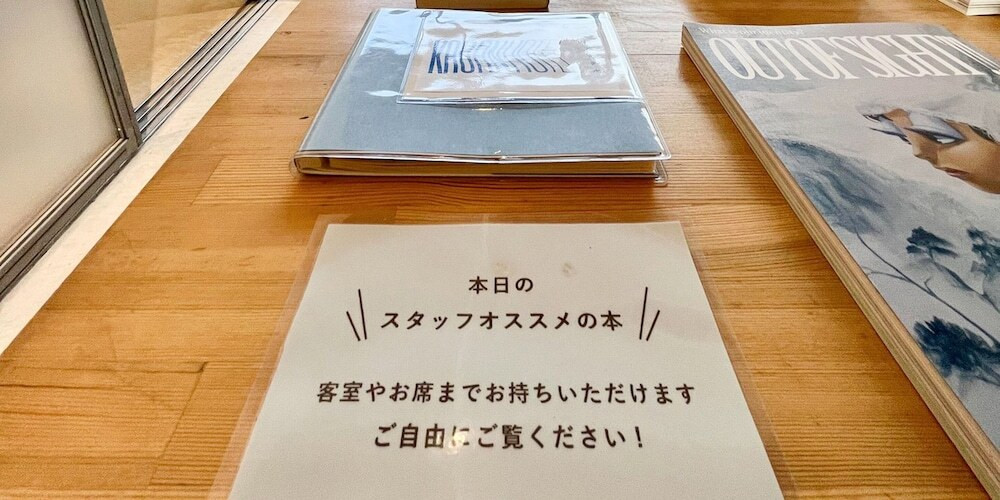 OUT OF SIGHT
本日の
スタッフオススメの本
客室やお席までお持ちいただけます
ご自由にご覧ください!